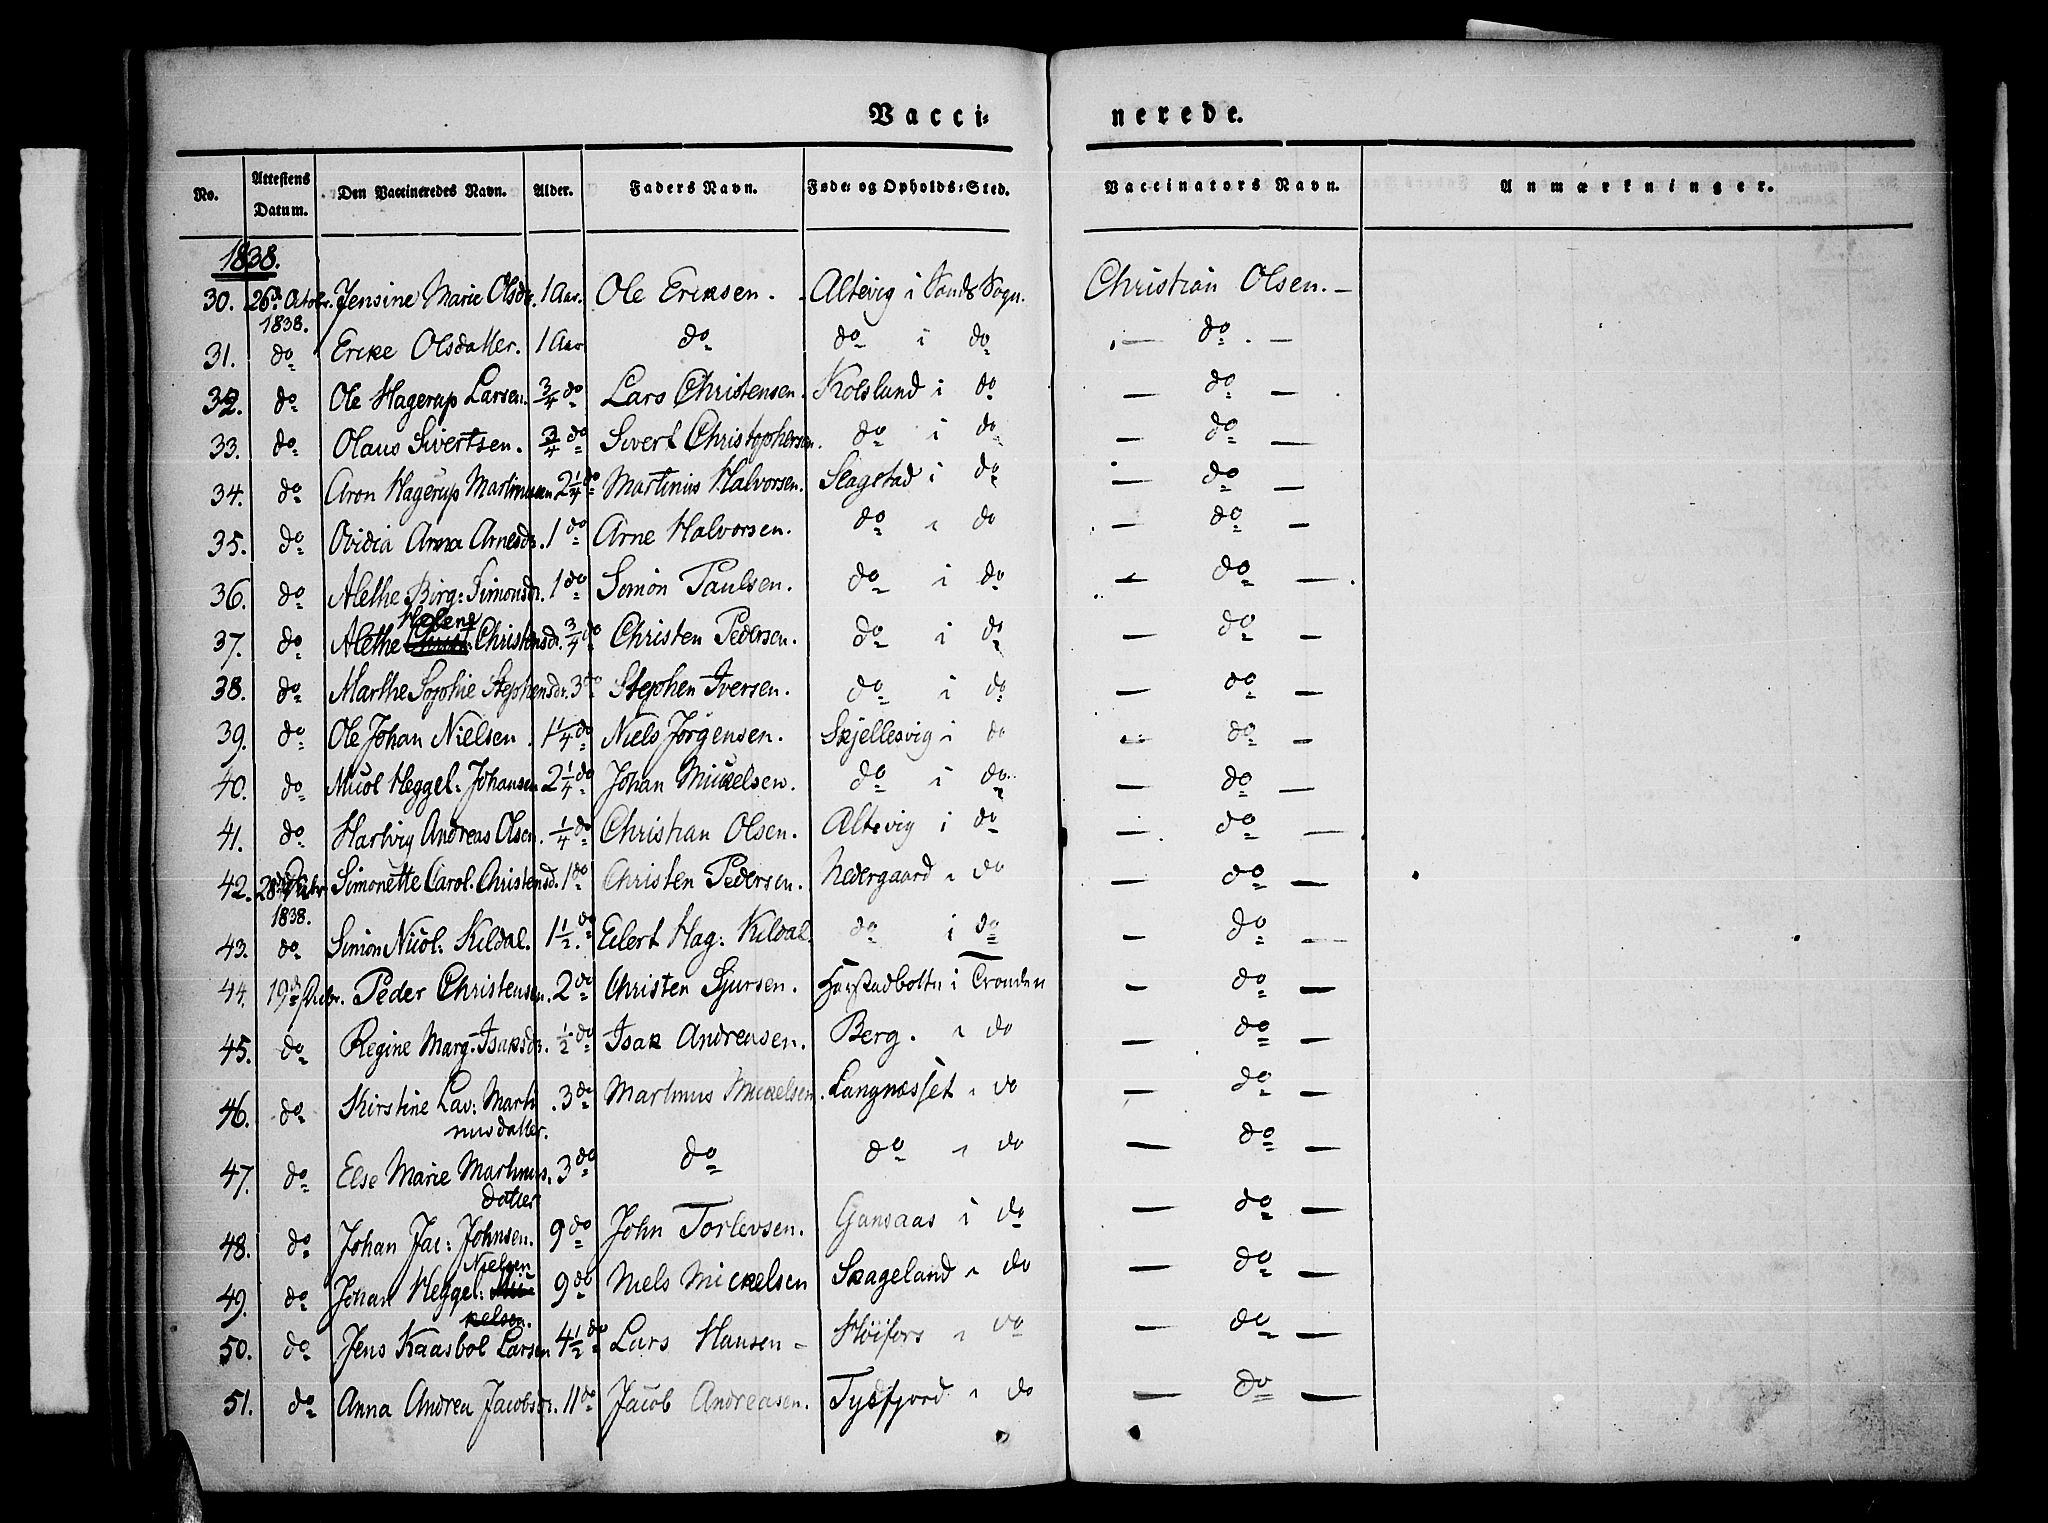 Vacci- nerede.
No. Attestens Datum. Den Vaccineredes Navn. Alder. Faders Navn. Føde- og Opholds-Sted. Vaccinators Navn. Anmærkninger.
1838.
30. 26de Octobr. 1838. Jensine Marie Olsdr. 1 Aar. Ole Ericksen. Altevig i Sands Sogn. Christian Olsen. —
31. do Ericke Olsdatter. 1 Aar do do i do — do. —
32. do Ole Hagerup Larsen. 3/4 do Lars Christensen. Kolsland i do — do —
33. do Olaus Sivertsen. 3/4 do Sivert Christophersen. do i do — do —
34. do Aron Hagerup Martinusen 2 1/4 do Martinus Halvorsen. Slagstad i do — do —
35. do Ovidia Anna Arnesdr. 1 do Arne Halvorsen. do i do — do —
36. do Alethe Birg: Simonsdr. 1 do Simon Paulsen. do i do — do —
Helene
37. do Alethe Christensdr. 3/4 do Christen Pedersen. do i do — do —
38. do Marthe Sophie Stephensdr. 3 do Stephen Iversen. do i do — do —
39. do Ole Johan Nielsen. 1 1/4 do Niels Jørgensen. Skjellesvig i do — do —
40. do Nicol Heggel: Johansen 2 1/4 do Johan Mickelsen. do i do — do —
41. do Hartvig Andreas Olsen. 1/4 do Christian Olsen. Altevig i do — do —
42. 28de 1838. Simonette Carol. Christensd. 1 do Christen Pedersen. Nedergaard i do — do —
43. do Simon Nicol: Kildal. 1 1/2 do Eilert Hag: Kildal. do i do — do —
44. 19de Peder Christensen. 2 do Christen Sjursen. Harstadbolte i Tronden — do —
45. do Regine Marg. Isaksdr. 1/2 do Isak Andreasen. Berg. i do — do —
46. do Kirstine Lav: Marti 3 do Martinus Mickelsen. Langnæsset i do — do —
nusdatter.
47. do Else Marie Martinus 3 do do do i do — do —
datter
48. do Johan Jac: Johnsen. 9 do John Torlevsen. Gansaas i do — do —
Nielsen
49. do Johan Heggel: Mickelsen. 9 do Niels Mickelsen Skageland i do — do —
50. do Jens Kaasbol Larsen 4 1/2 do Lars Hansen — Høifors i do — do —
51. do Anna Andrea Jacobsdr. 11 do Jacob Andreasen. Tysfjord i do — do —